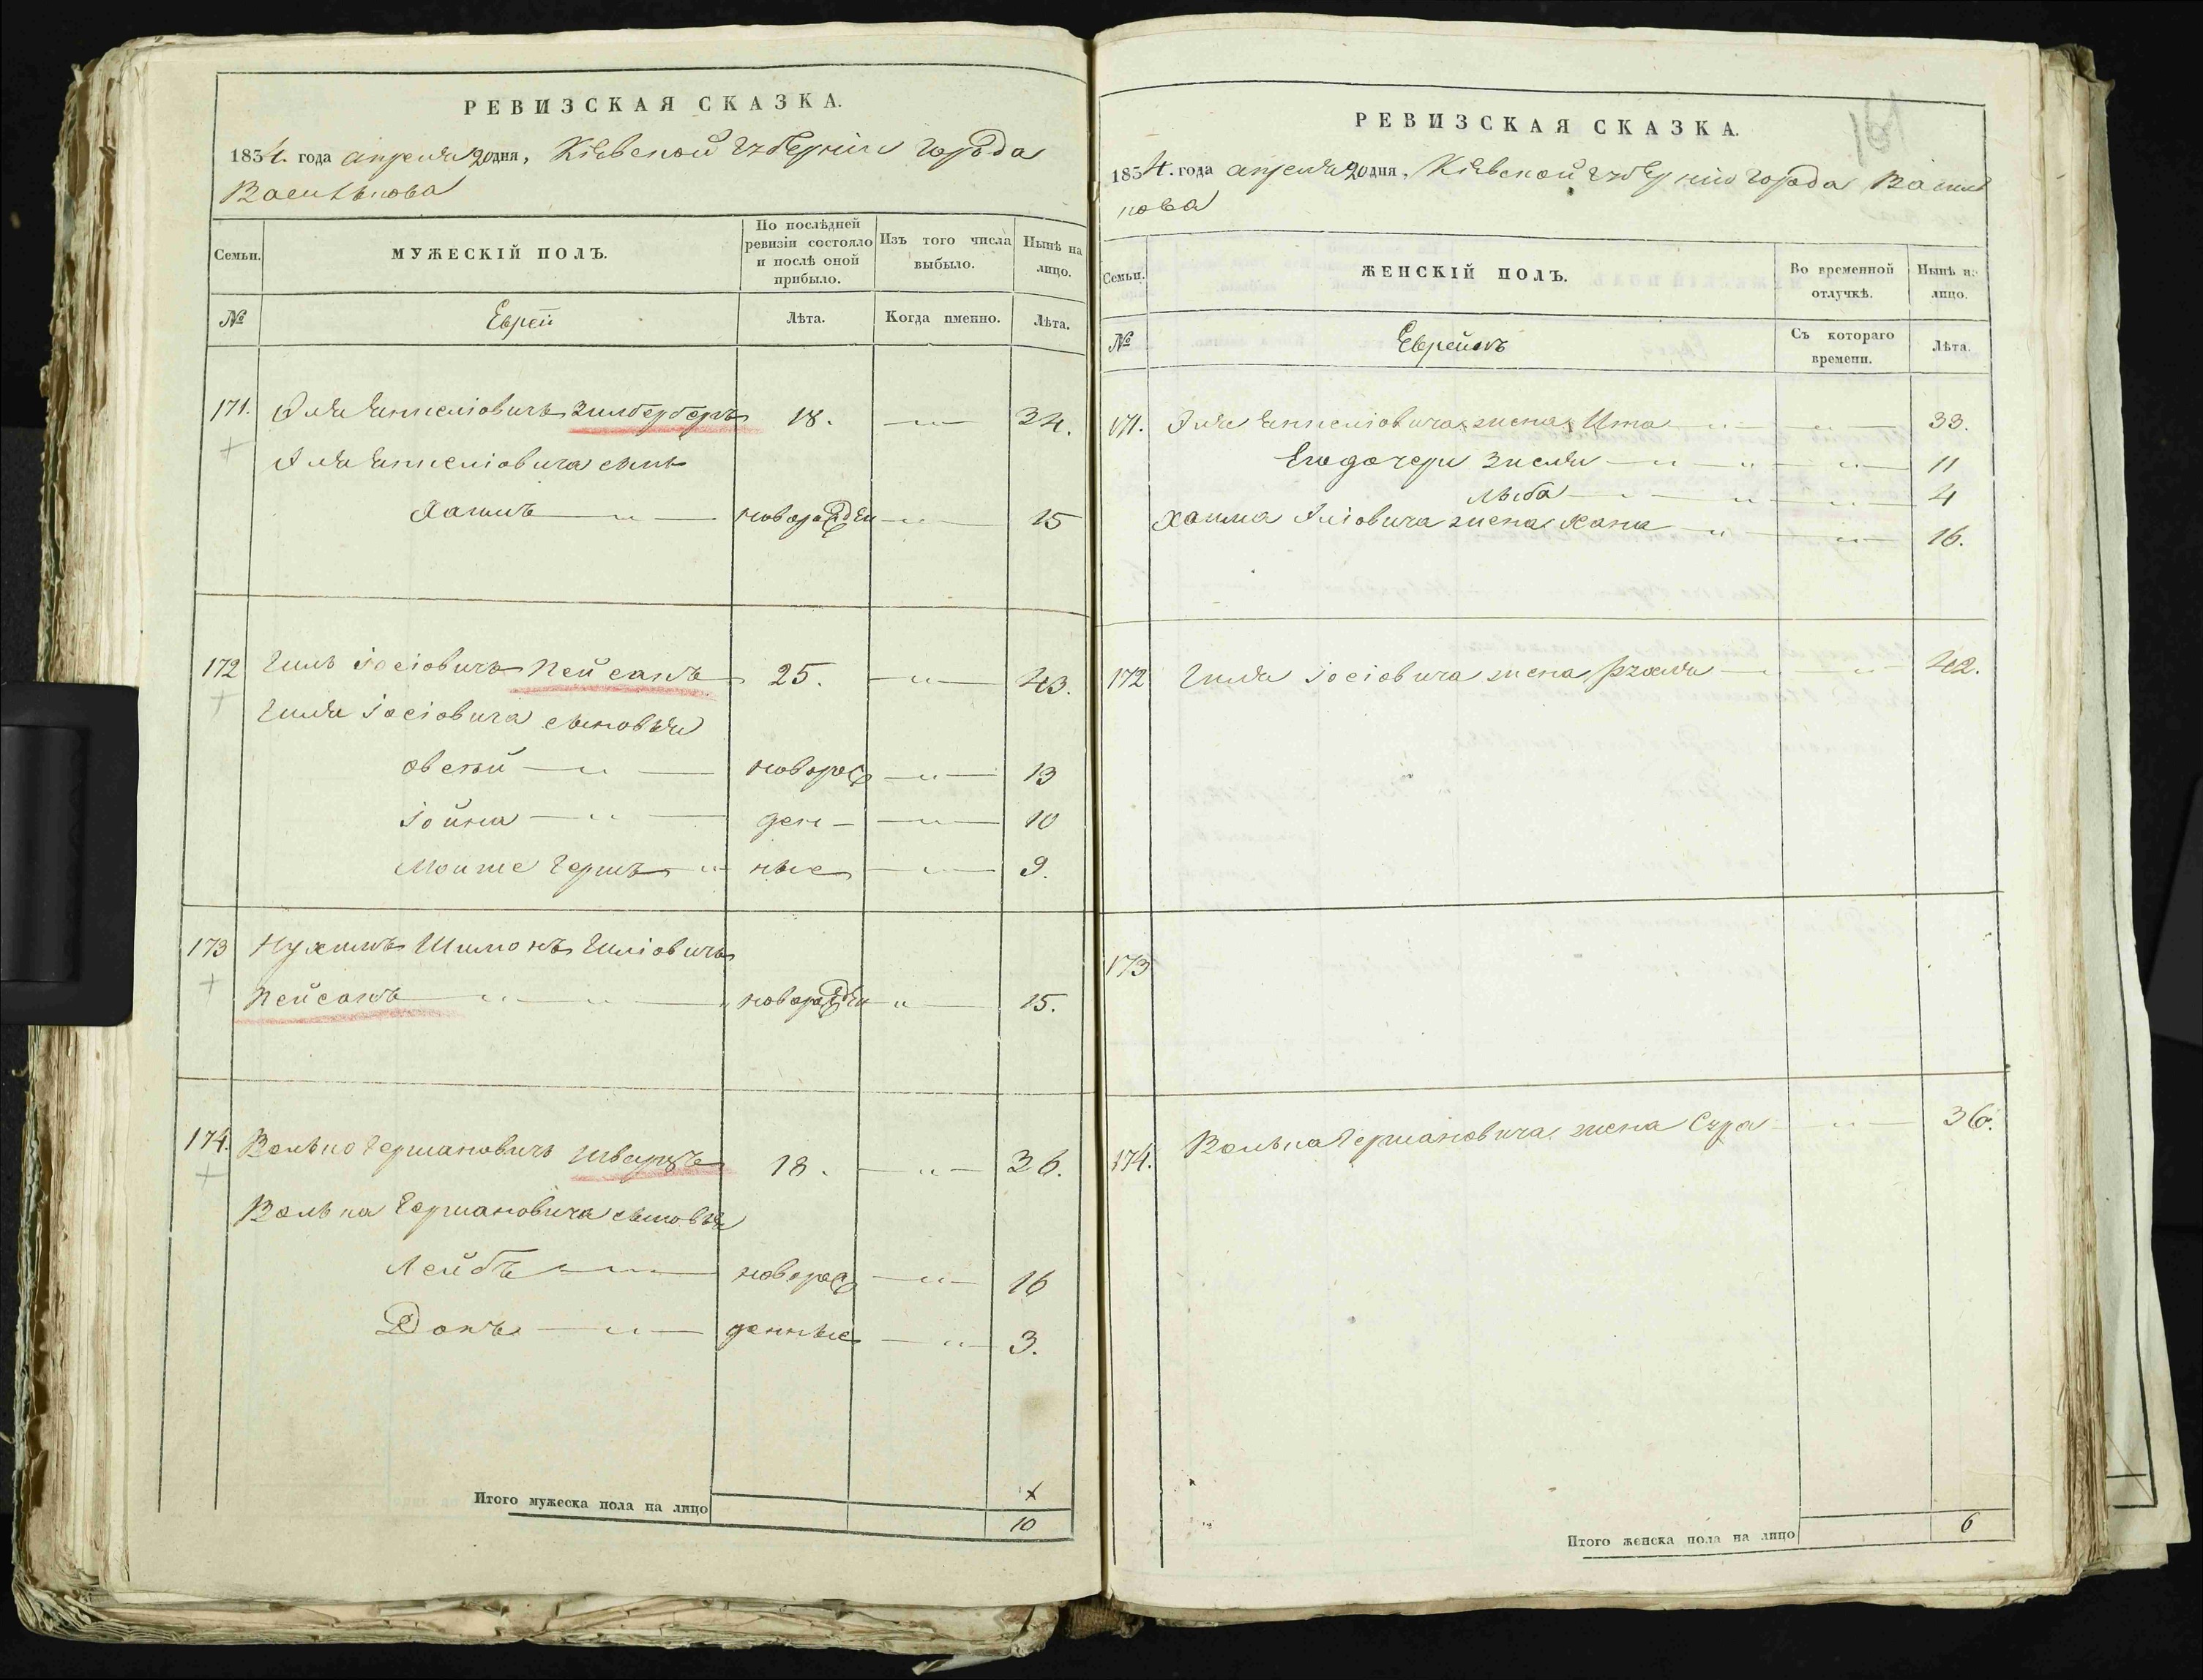 РЕВИЗСКАЯ СКАЗКА.
1854. года апреля 20 дня, Кіевской губерніи города
Василькова
Семьи.
МУЖЕСКІЙ ПОЛЪ.
По послѣдней
ревизіи состояло
и послѣ оной
прибыло.
Изъ того числа
выбыло.
Нынѣ на
лицо.
№
Еврей
Лѣта.
Когда именно.
Лѣта.
171. Іиля Янкеліовичъ Зилберберъ 18. 34.
Іиля Янкеліовича сынъ
Хаимъ новорожден 15
172 Гиль Іосіовичъ Пейсахъ 25. 43.
Гиля Іосіовича сыновья
Овсей новорож 13
Іойна ден 10
Мошке Гершъ ные 9.
173 Нухимъ Шимонъ Гиліовичъ
Пейсахъ новорожден 15.
174. Волько Гершановичъ Шварцъ 18. 36.
Волька Гершановича сыновья
Лейбъ новорож 16
Донъ денные 3.
Итого мужеска пола на лицо
10
161
РЕВИЗСКАЯ СКАЗКА.
1854. года апреля 20 дня, Кіевской губерніи города Василь
кова
Семьи.
ЖЕНСКІЙ ПОЛЪ.
Во временной
отлучкѣ.
Нынѣ на
лицо.
№
Еврейскъ
Съ котораго
времени.
Лѣта.
171. Іиля Янкеліовича жена Ита 33.
Его дочери Зисля 11
Лыба 4
Хаима Иліовича жена Хана 16.
172 Гиля Іосіовича жена Рахля 42.
173
174. Волька Гершановича жена Сура 36.
Итого женска пола на лицо
6